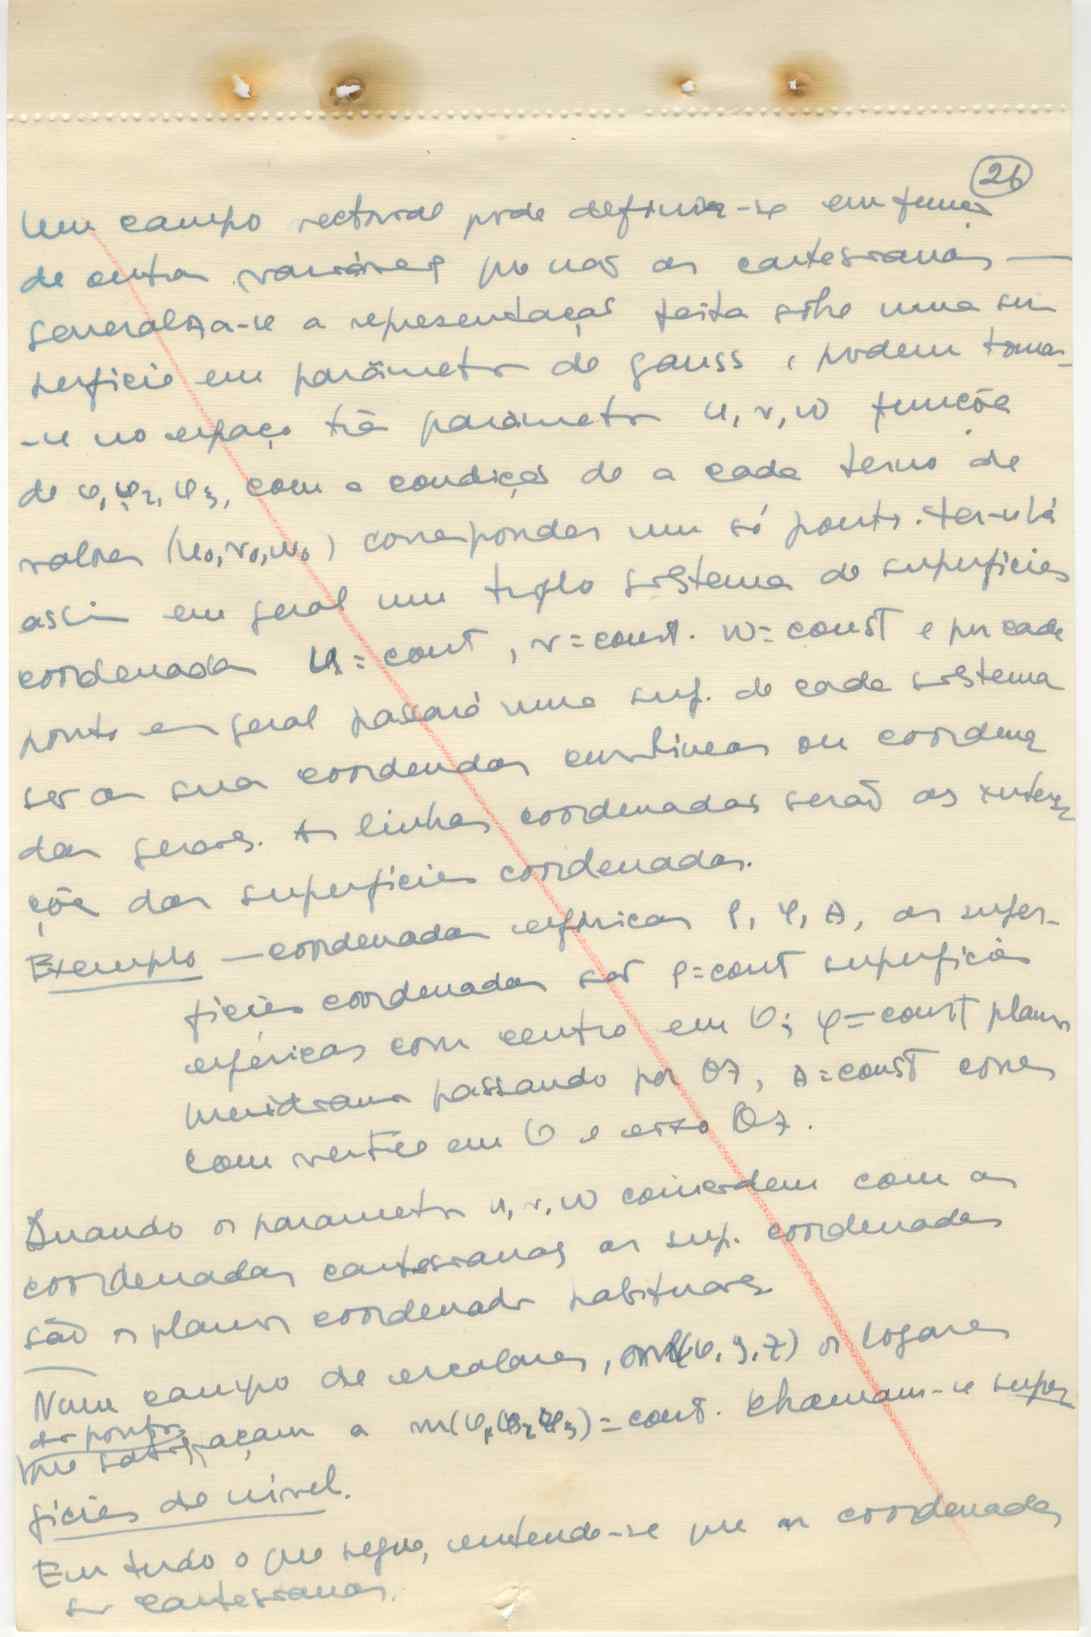 26
Um campo vectorial pode definir-se em função
de outras variáveis que não as cartesianas —
generaliza-se a representação feita sobre uma su
perfície em parâmetros de gauss, podem tomar-
-se no espaço três parâmetros u, v, w funções
de φ₁, φ₂, φ₃, com a condição de a cada terno de
valores (u₀, v₀, w₀) corresponder um só ponto. Ter-se-á
assim em geral um triplo sistema de superfícies
coordenadas u = const, v = const. w = const e por cada
ponto em geral passará uma sup. de cada sistema
ser as suas coordenadas curvilíneas ou coordena
das gerais. As linhas coordenadas serão as interse
ções das superfícies coordenadas.
Exemplo — coordenadas esféricas ρ, φ, θ, as super-
fícies coordenadas são ρ = const superfícies
esféricas com centro em O; φ = const planos
meridianos passando por OZ, θ = const cones
com vértice em O e eixo OZ.
Quando os parametros u, v, w coincidem com as
coordenadas cartesianas as sup. coordenadas
são os planos coordenados habituais
Num campo de escalares, (φ, y, z) os logares
dos pontos
que satisfaçam a m(φ₁, φ₂, φ₃) = const. chamam-se super
fícies de nível.
Em tudo o que segue, entende-se que as coordenadas
são cartesianas.